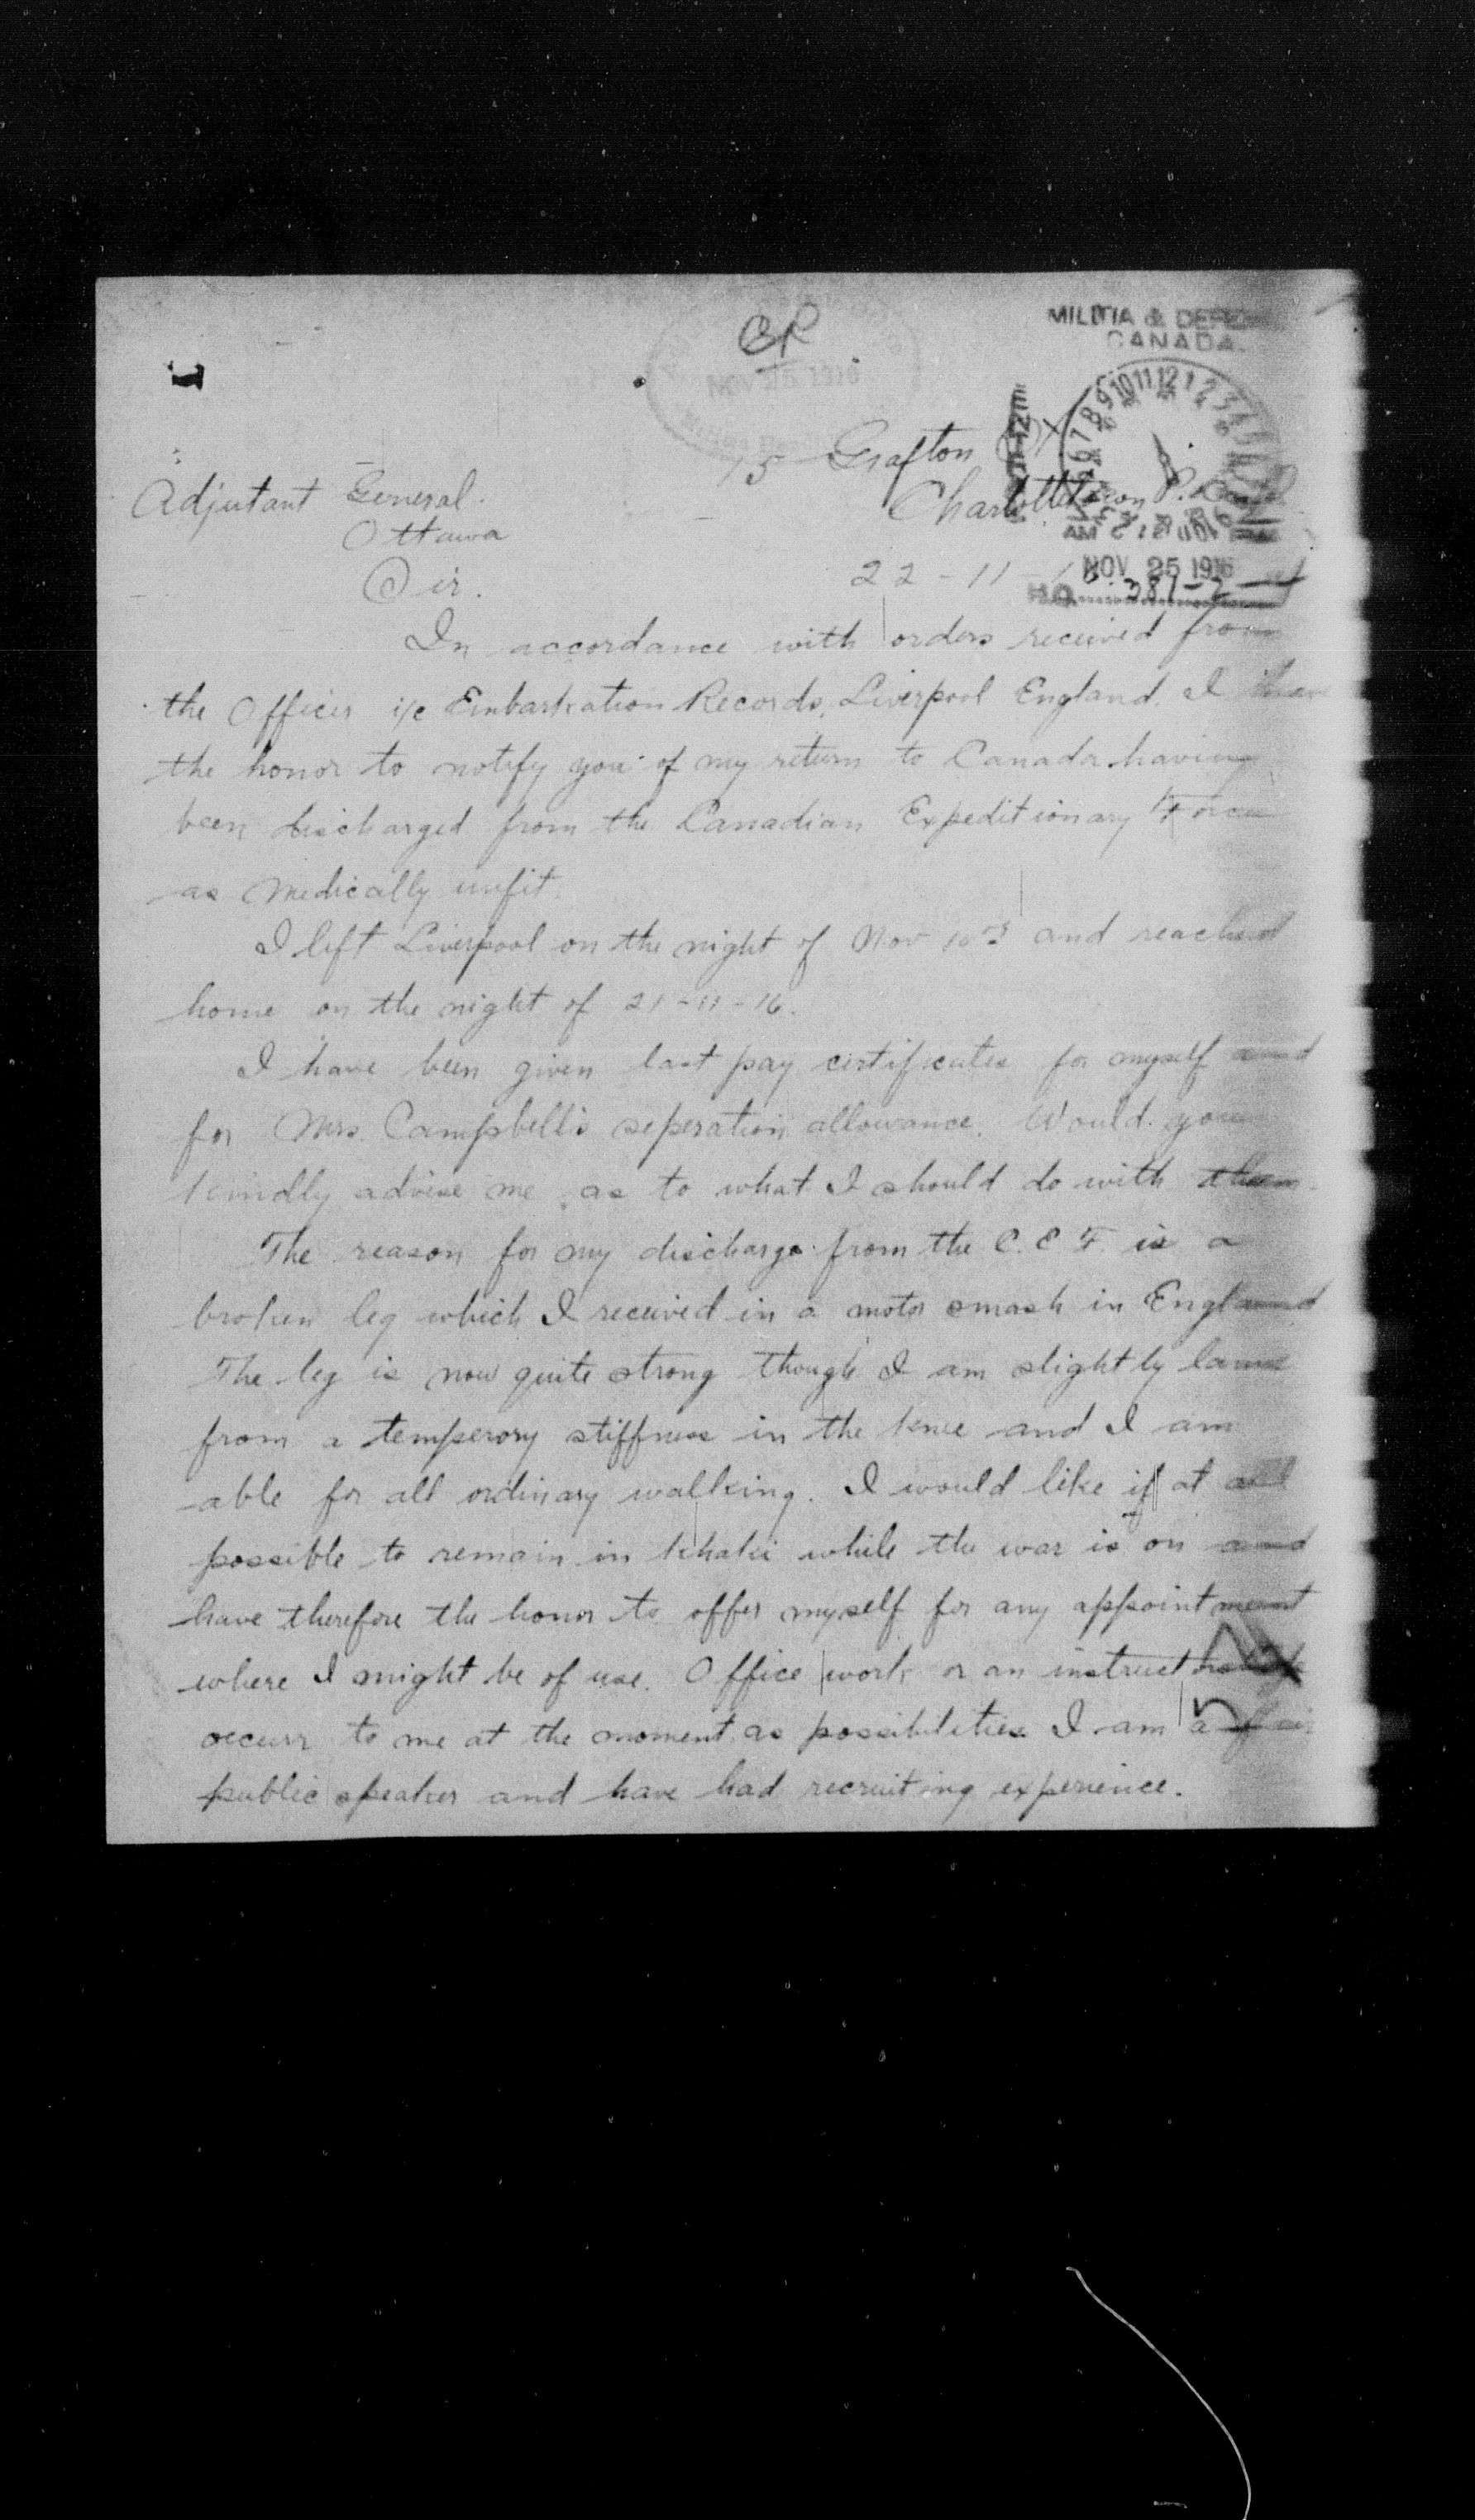 CR
MILITIA & DEFENCE
CANADA.
NOV 25 1916
15 Grafton St
Adjutant General.
Charlottetown P.
Ottawa
NOV 25 1916
22-11-16
H.Q. 387-2-
Sir.
In accordance with orders received from
the Officer i/c Embarkation Records, Liverpool England. I have
the honor to notify you of my return to Canada having
been discharged from the Canadian Expeditionary Force
as medically unfit.
I left Liverpool on the night of Nov and reached
home on the night of 21-11-16.
I have been given last pay certificates for myself and
for Mrs. Campbell's seperation allowance. Would you
kindly advise me as to what I should do with them.
The reason for my discharge from the C.E.F. is a
broken leg which I received in a motor smash in England
The leg is now quite strong though I am slightly lame
from a temperory stiffness in the knee and I am
able for all ordinary walking. I would like if at all
possible to remain in khaki while the war is on and
have therefore the honor to offer myself for any appointment
where I might be of use. Office work or an instructorship
occurr to me at the moment as possibilities I am a fair
public speaker and have had recruiting experience.